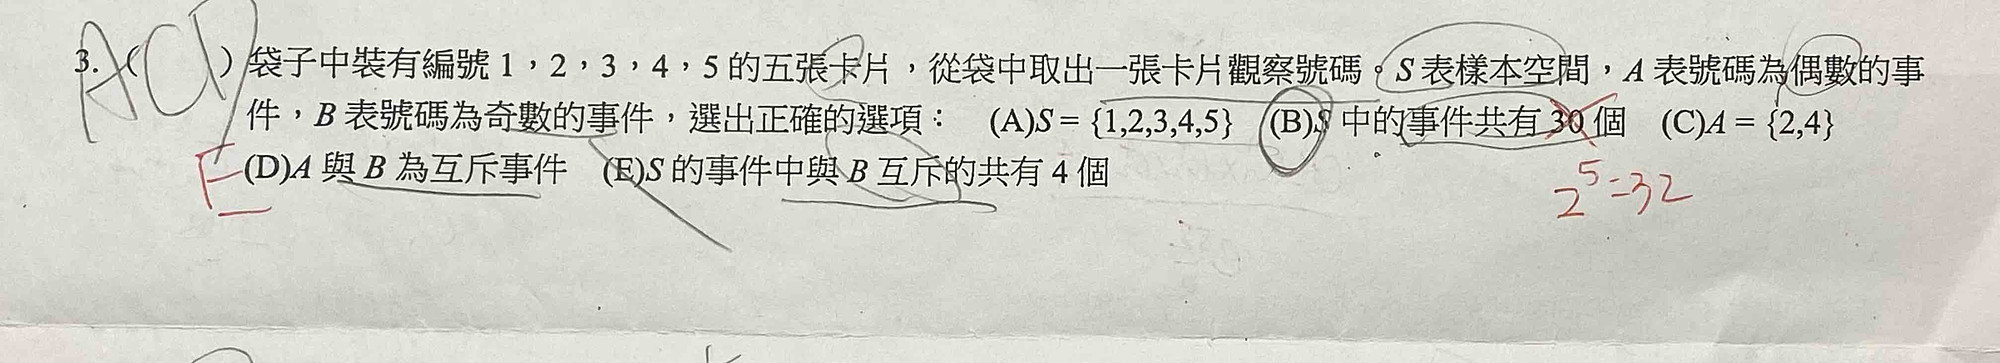 ACD
3. ( ) 袋子中裝有編號 1，2，3，4，5 的五張卡片，從袋中取出一張卡片觀察號碼。S 表樣本空間，A 表號碼為偶數的事
件，B 表號碼為奇數的事件，選出正確的選項： (A)S = {1,2,3,4,5} (B)S 中的事件共有 30 個 (C)A = {2,4}
E (D)A 與 B 為互斥事件 (E)S 的事件中與 B 互斥的共有 4 個
2^5=32